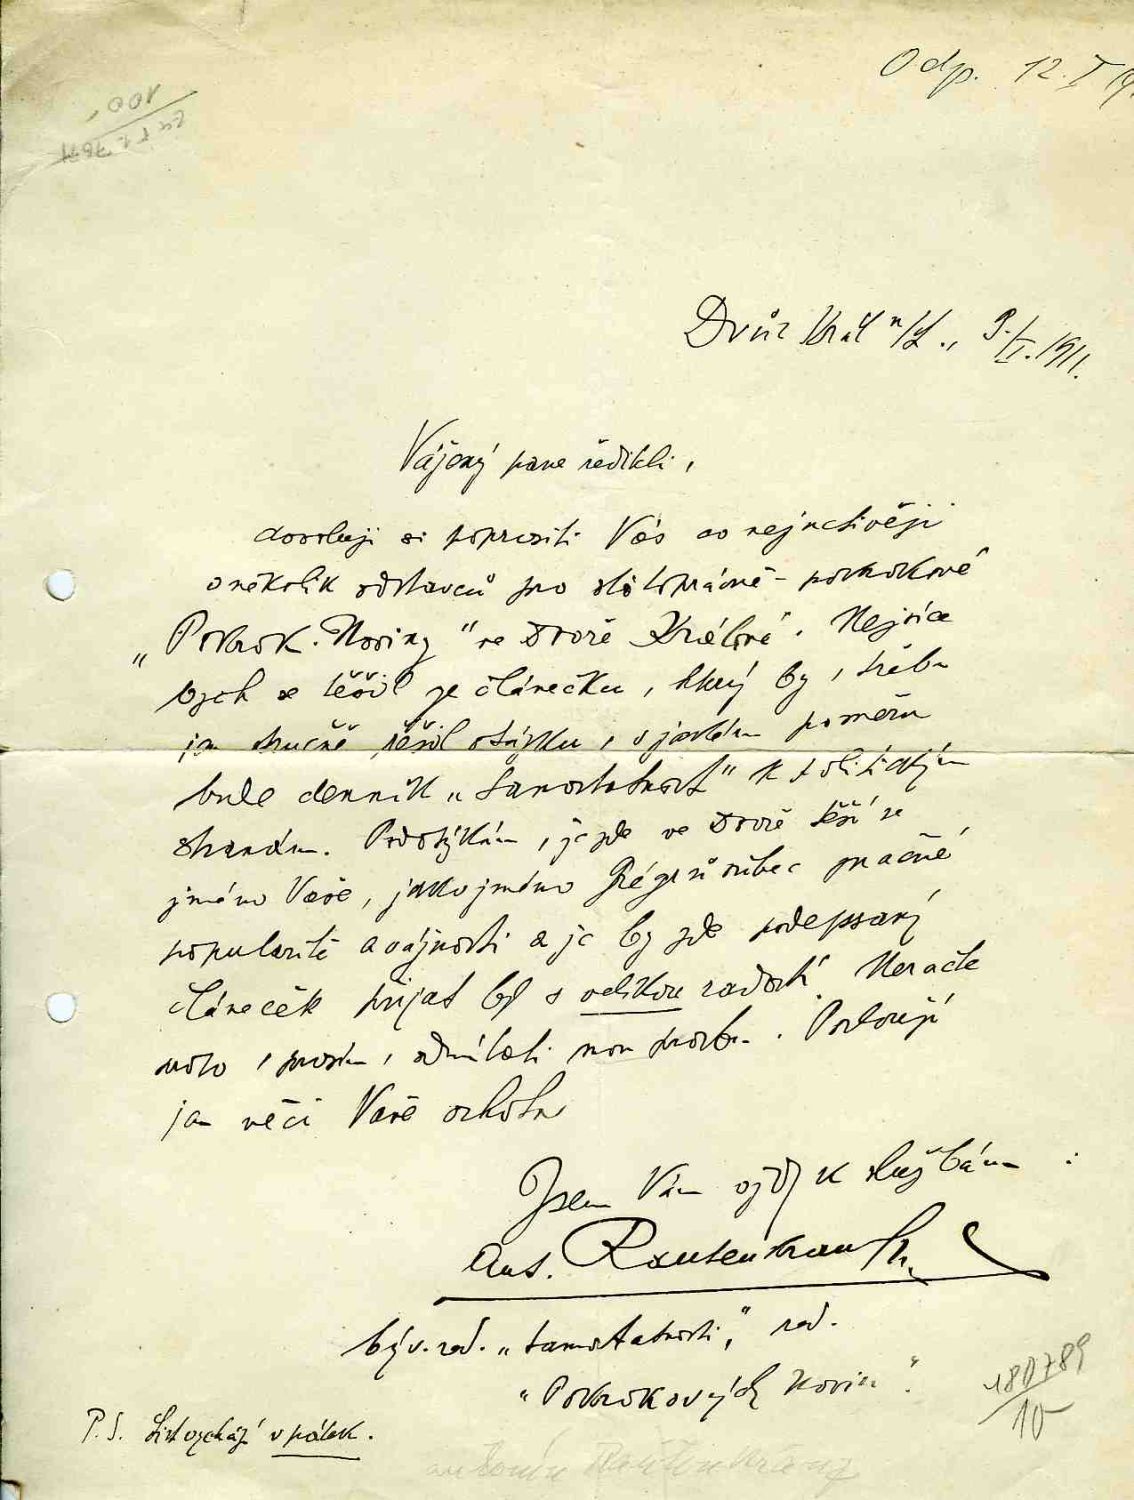 Odp. 12. I 19
100,
Dvůr Král n/L., 9./I. 1911.
Vážený pane řediteli,
dovoluji si poprositi Vás co nejuctivěji
o několik odstavců pro státoprávně-pokrokové
„Pokrok. Noviny" ve Dvoře Králové. Nejvíce
bych se těšil ze článečku, který by, třeba
jen stručně řešil otázku, v jakém poměru
bude denník „Samostatnost" k politickým
stranám. Podotýkám, že zde ve Dvoře těší se
jméno Vaše, jako jméno vůbec značné
popularitě a vážnosti a že by zde podepsaný
článeček přijat byl s velikou radostí. Neračte
mto, prosím, odmítati mou prosbu. Poroučeje
jen věci Vaše ochotu
Jsem Vám vždy k službám:
Ant. Rautenkranz
býv. red. „Samostatnosti", red.
„Pokrokových Novin".
P.S. List vychází v pátek.
180789
10
Antonín Rautenkranz